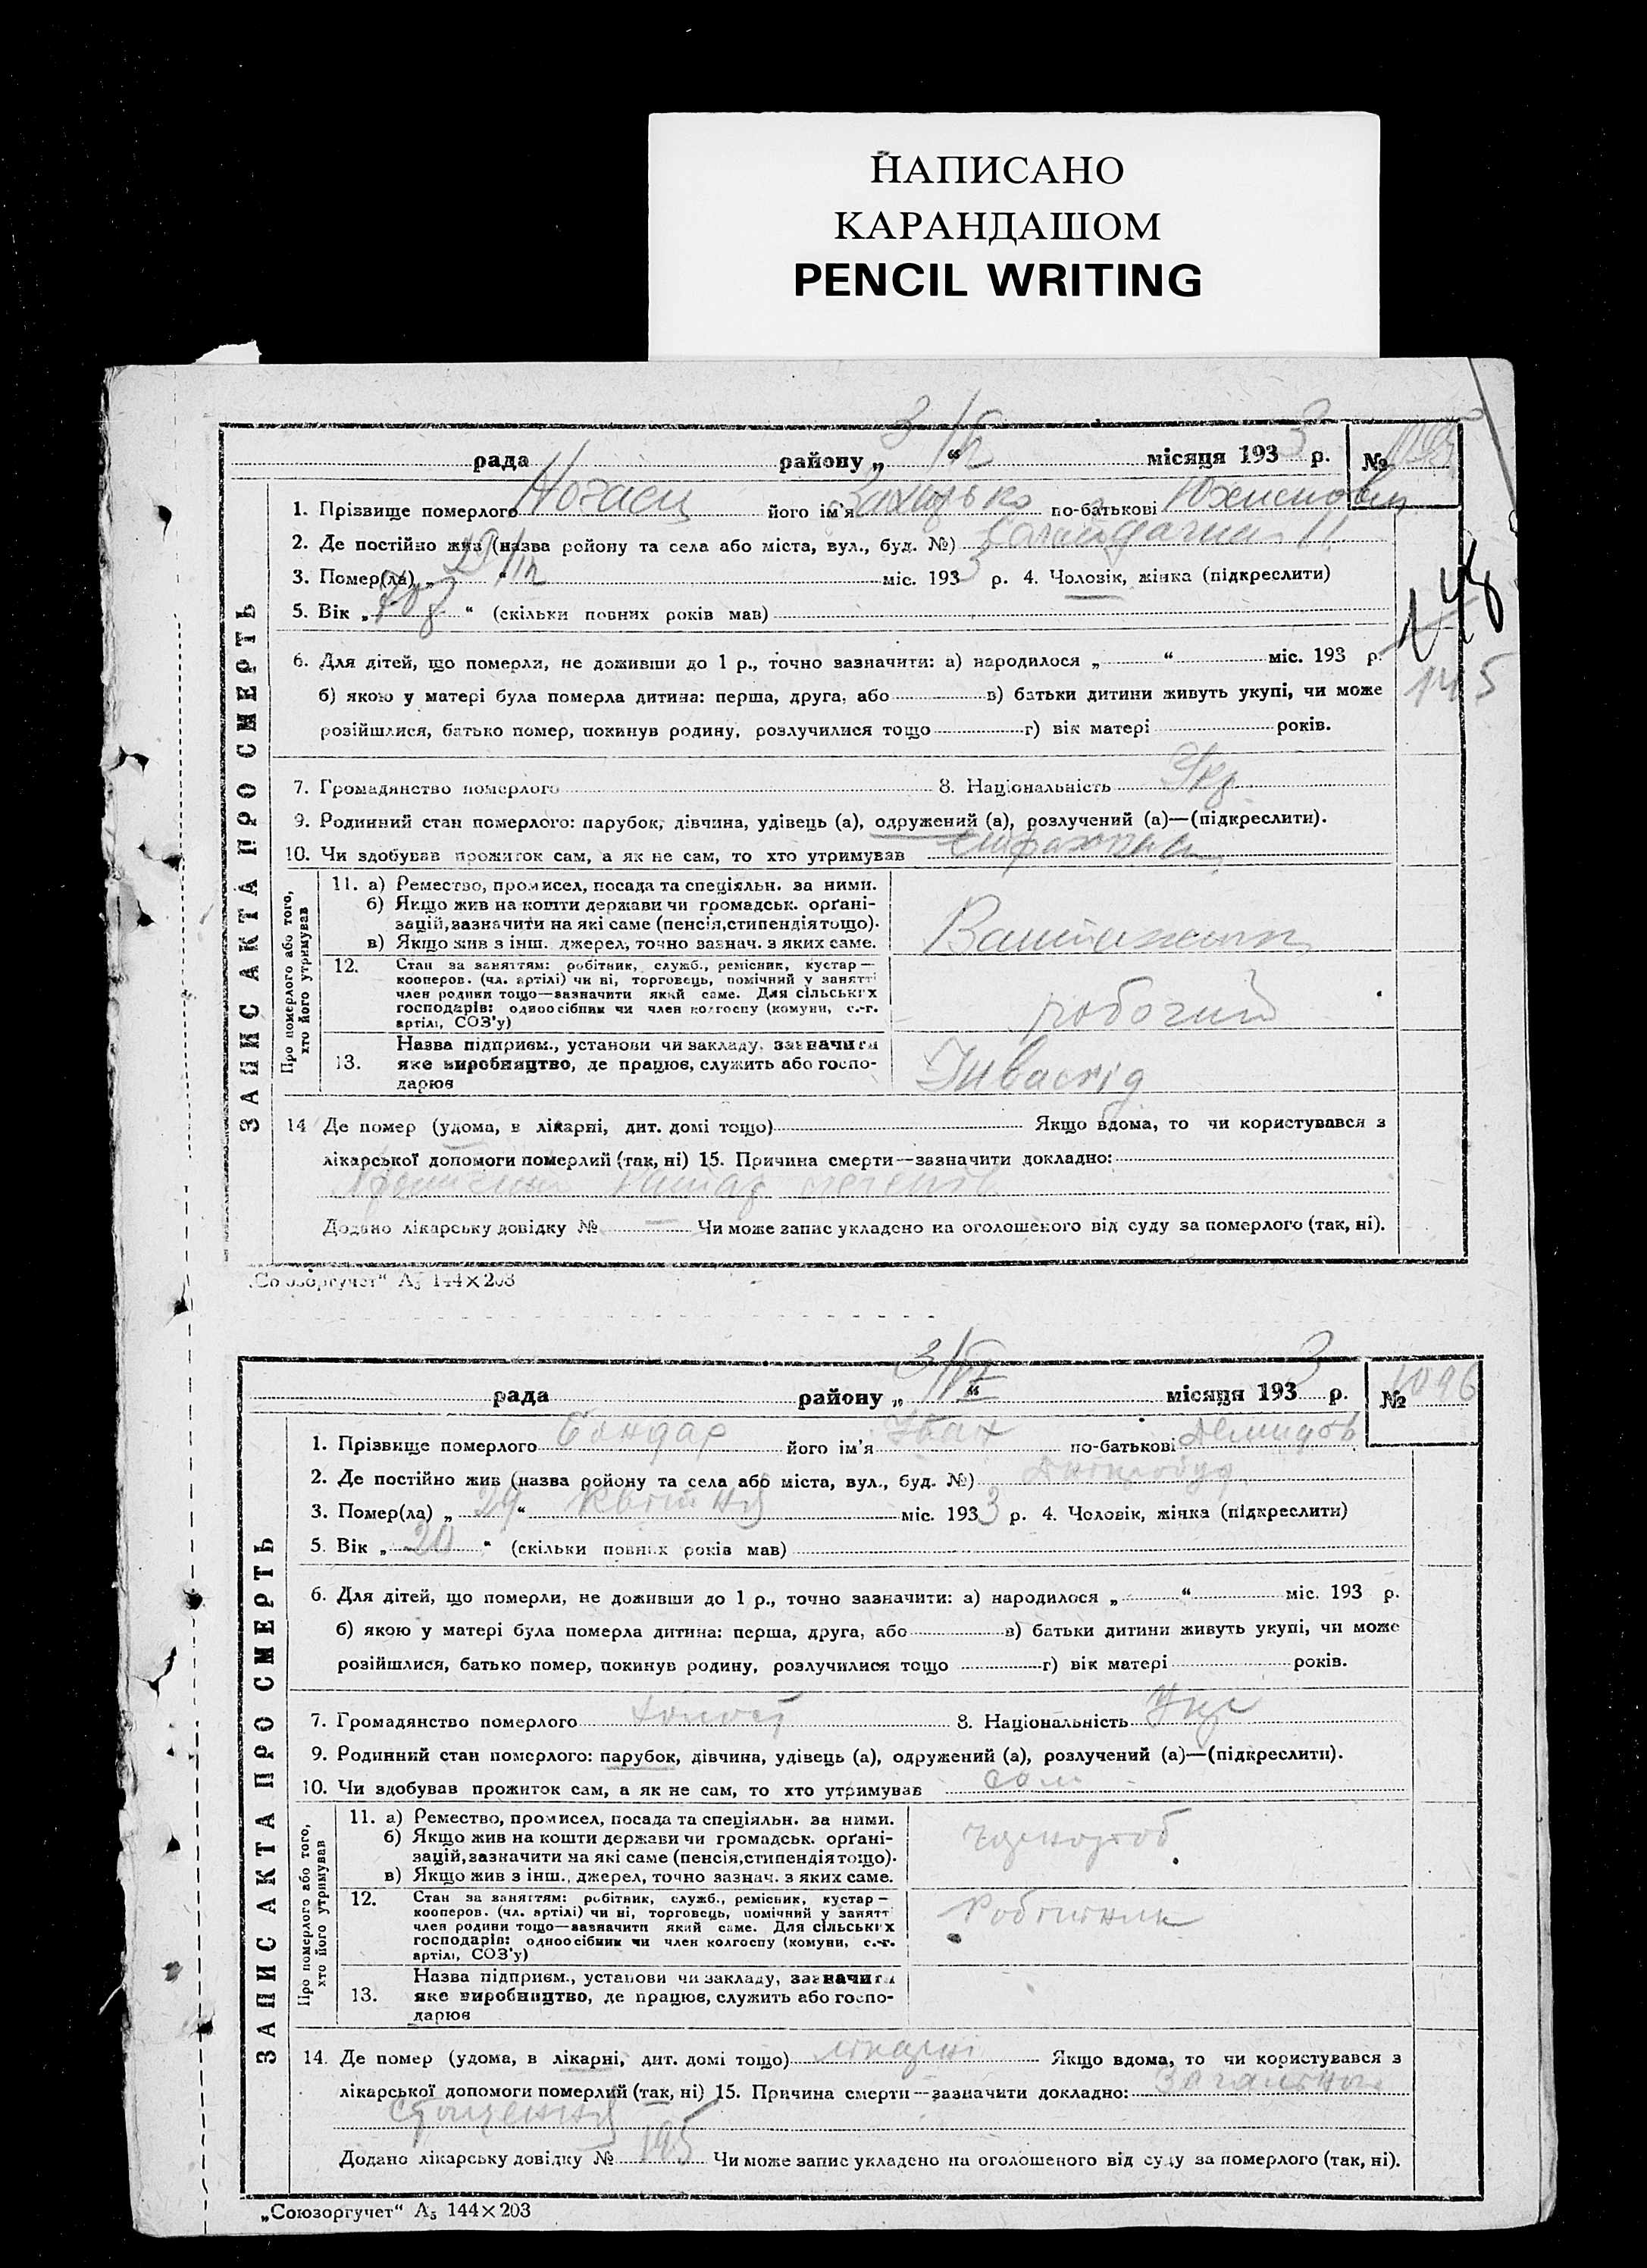 НАПИСАНО
КАРАНДАШОМ
PENCIL WRITING
рада району „ 3 “ місяця 1933 р. №
ЗАПИС АКТА ПРО СМЕРТЬ
1. Прізвище померлого Ногаец його ім'я по-батькові
2. Де постійно жив (назва району та села або міста, вул., буд. №) 11
3. Помер(ла) „ 29 “ міс. 1933 р. 4. Чоловік, жінка (підкреслити)
5. Вік „ “ (скільки повних років мав)
148
145
6. Для дітей, що померли, не доживши до 1 р., точно зазначити: а) народилося „ “ міс. 193 р.
б) якою у матері була померла дитина: перша, друга, або в) батьки дитини живуть укупі, чи може
розійшлися, батько помер, покинув родину, розлучилися тощо г) вік матері років.
7. Громадянство померлого 8. Національність Укр
9. Родинний стан померлого: парубок, дівчина, удівець (а), одружений (а), розлучений (а)—(підкреслити).
10. Чи здобував прожиток сам, а як не сам, то хто утримував
Про померлого або того, хто його утримував
11. а) Ремество, промисел, посада та спеціяльн. за ними.
б) Якщо жив на кошти держави чи громадськ. орґані-
зацій, зазначити на які саме (пенсія, стипендія тощо).
в) Якщо жив з інш. джерел, точно зазнач. з яких саме.
12. Стан за заняттям: робітник, служб., ремісник, кустар—
кооперов. (чл. артілі) чи ні, торговець, помічний у занятті
член родини тощо—зазначити який саме. Для сільських
господарів: одноосібник чи член колгоспу (комуни, с.-г.
артілі, СОЗ'у)
робочий
13. Назва підприєм., установи чи закладу, зазначити
яке виробництво, де працює, служить або госпо-
дарює
14 Де помер (удома, в лікарні, дит. домі тощо) Якщо вдома, то чи користувався з
лікарської допомоги померлий (так, ні) 15. Причина смерти—зазначити докладно:
Додано лікарську довідку № — Чи може запис укладено на оголошеного від суду за померлого (так, ні).
„Союзоргучет“ А5 144×203
рада району „ 3/VI “ місяця 1933 р. № 1096
ЗАПИС АКТА ПРО СМЕРТЬ
1. Прізвище померлого Бондар його ім'я Іван по-батькові Демидов
2. Де постійно жив (назва району та села або міста, вул., буд. №) Дніпробуд
3. Помер(ла) „ 29 “ квітня міс. 1933 р. 4. Чоловік, жінка (підкреслити)
5. Вік „ 20 “ (скільки повних років мав)
6. Для дітей, що померли, не доживши до 1 р., точно зазначити: а) народилося „ “ міс. 193 р.
б) якою у матері була померла дитина: перша, друга, або в) батьки дитини живуть укупі, чи може
розійшлися, батько помер, покинув родину, розлучилися тощо г) вік матері років.
7. Громадянство померлого 8. Національність Укр
9. Родинний стан померлого: парубок, дівчина, удівець (а), одружений (а), розлучений (а)—(підкреслити).
10. Чи здобував прожиток сам, а як не сам, то хто утримував сам
Про померлого або того, хто його утримував
11. а) Ремество, промисел, посада та спеціяльн. за ними.
б) Якщо жив на кошти держави чи громадськ. орґані-
зацій, зазначити на які саме (пенсія, стипендія тощо).
в) Якщо жив з інш. джерел, точно зазнач. з яких саме.
чорнороб
12. Стан за заняттям: робітник, служб., ремісник, кустар—
кооперов. (чл. артілі) чи ні, торговець, помічний у занятт
член родини тощо—зазначити який саме. Для сільських
господарів: одноосібник чи член колгоспу (комуни, с.-г.
артілі, СОЗ'у)
Робітник
13. Назва підприєм., установи чи закладу, зазначити
яке виробництво, де працює, служить або госпо-
дарює
14. Де помер (удома, в лікарні, дит. домі тощо) лікарні Якщо вдома, то чи користувався з
лікарської допомоги померлий (так, ні) 15. Причина смерти—зазначити докладно: загальне
Додано лікарську довідку № 195 Чи може запис укладено на оголошеного від суду за померлого (так, ні).
„Союзоргучет“ А5 144×203